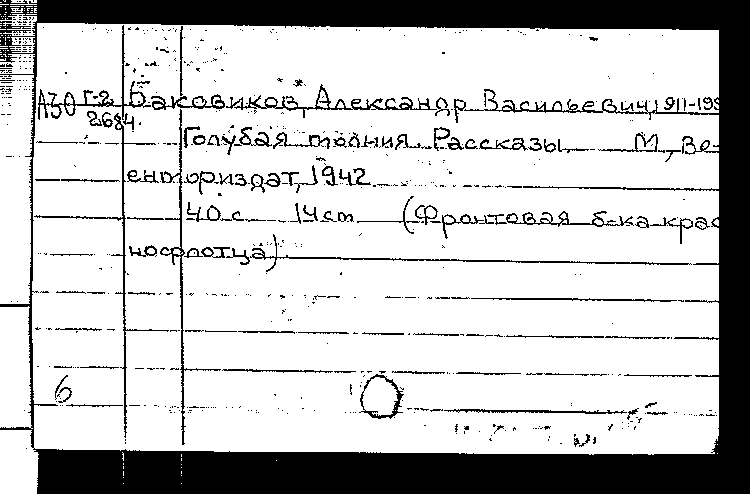 А30 Г-2 Баковиков, Александр Васильевич, 1911-198
2684.
Голубая молния. Рассказы. М., Во-
ениздат, 1942
40 с. 14 cm (Фронтовая б-ка крас
нофлотца).
6